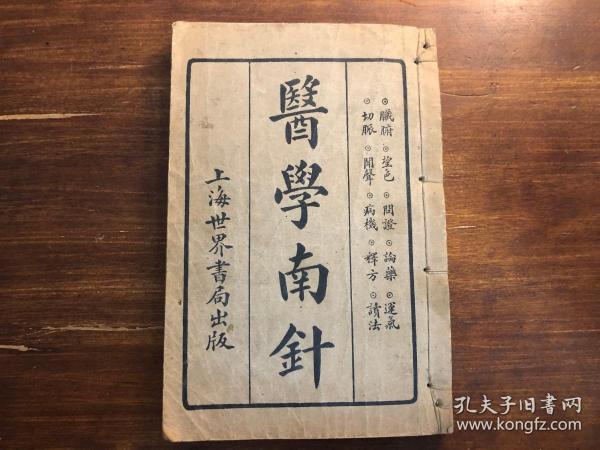 ⊙臟腑⊙望色⊙問證⊙論藥⊙運氣
⊙切脈⊙聞聲⊙病機⊙釋方⊙讀法
醫學南針
上海世界書局出版
孔夫子旧书网
www.kongfz.com